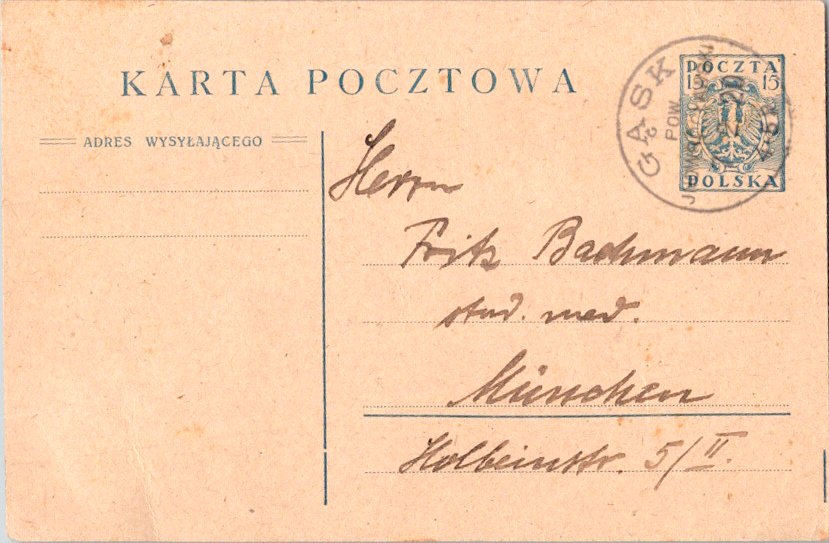 KARTA POCZTOWA
POCZTA
15 15
POLSKA
GĄSK
POW
ADRES WYSYŁAJĄCEGO
Herrn
Fritz Bachmann
stud. med.
München
Holbeinstr. 5/II.